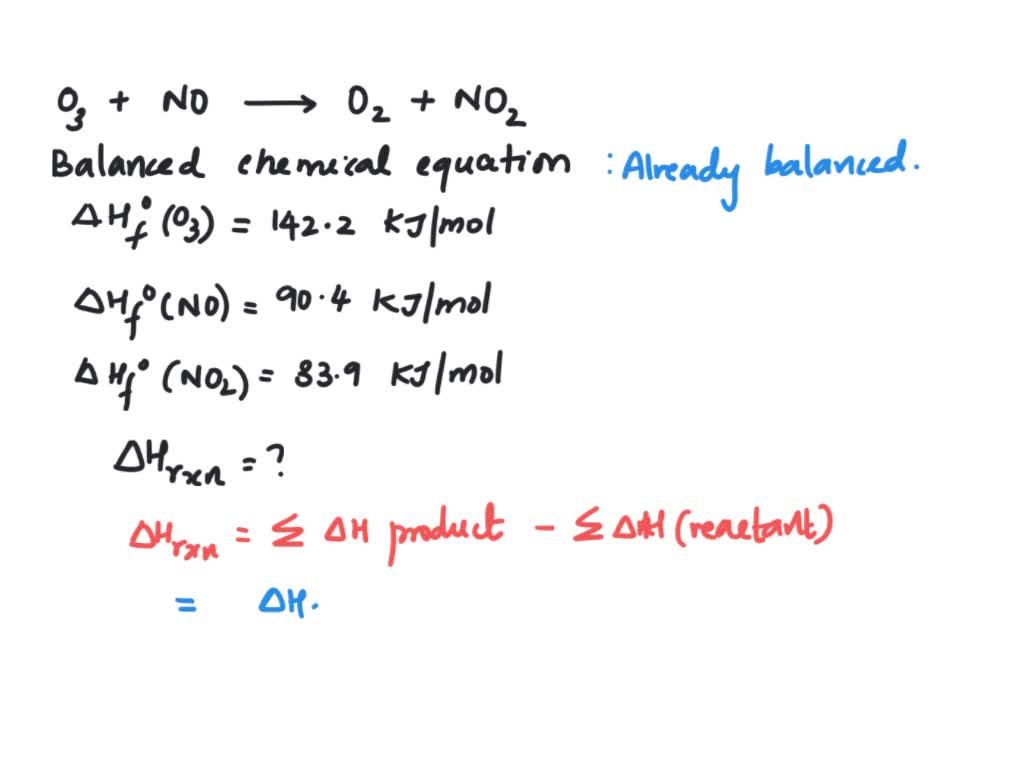 O₃ + NO ⟶ O₂ + NO₂
Balanced chemical equation : Already balanced.
ΔH°f (O₃) = 142.2 KJ/mol
ΔHf° (NO) = 90.4 KJ/mol
ΔHf° (NO₂) = 33.9 KJ/mol
ΔHrxn = ?
ΔHrxn = Σ ΔH product - Σ ΔH (reactant)
= ΔH.